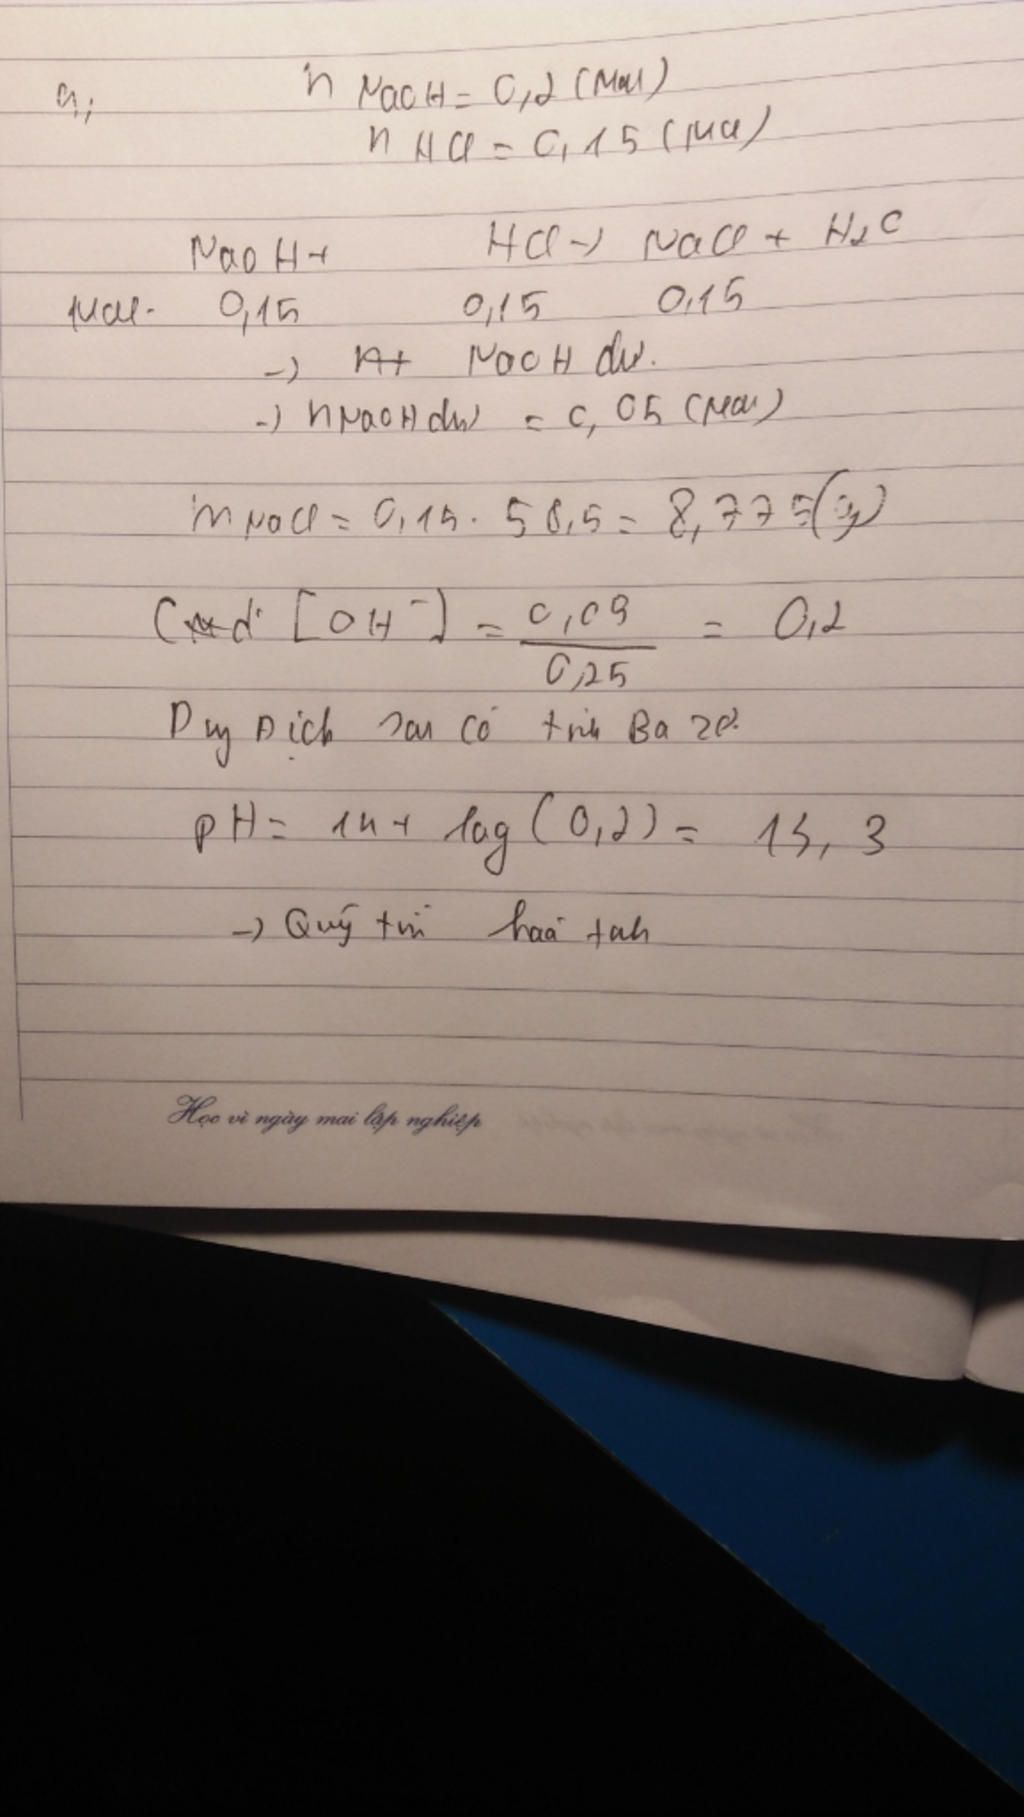 a,
n NaOH = 0,2 (Mol)
n HCl = 0,15 (Mol)
NaOH + HCl → NaCl + H2O
Mol. 0,15 0,15 0,15
→ NaOH dư.
→ nNaOH dư = 0,05 (Mol)
mNaCl = 0,15 . 58,5 = 8,775 (g)
[OH-] = 0,05 / 0,25 = 0,2
Dug Dịch sau có tính Bazơ.
pH = 14 + log (0,2) = 13,3
→ Quỳ tím hoá
Học vì ngày mai lập nghiệp